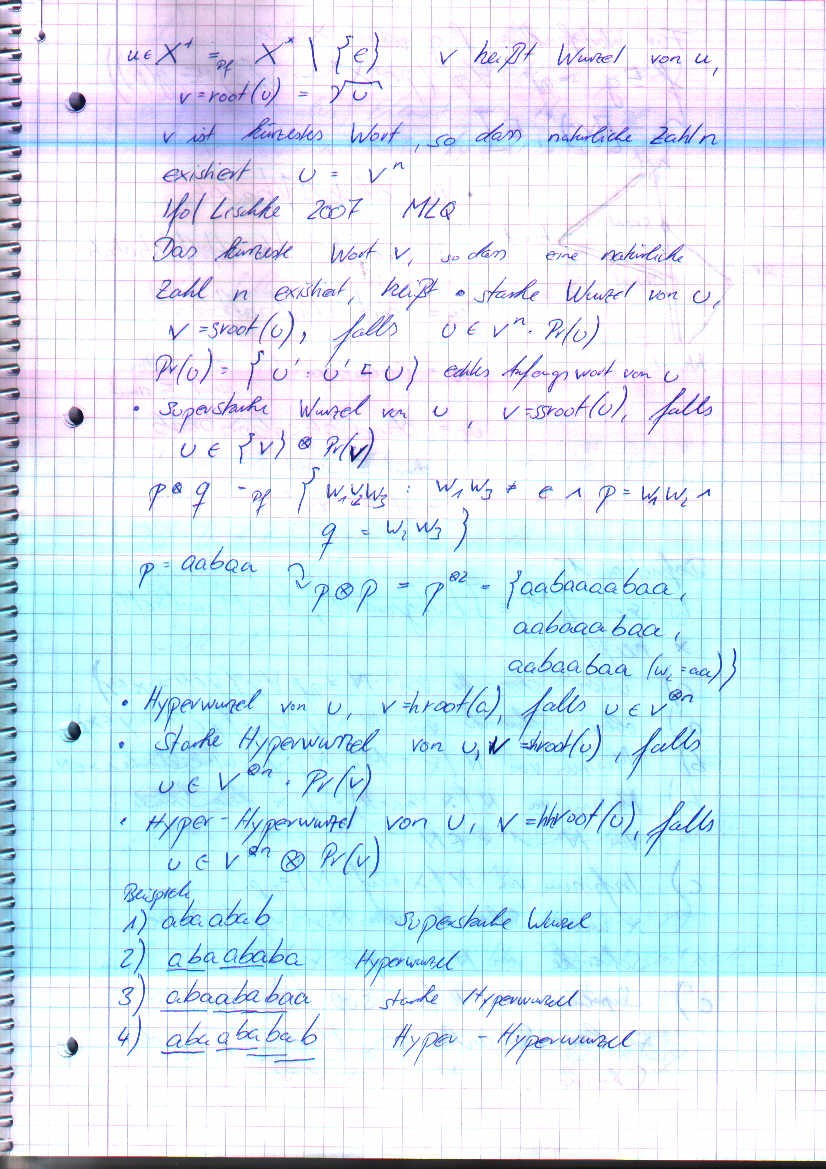 u ∈ X⁺ =Df X* \ {e} v heißt Wurzel von u,
v = root(u) = √u
v ist kürzestes Wort, so dass natürliche Zahl n
existiert u = vⁿ
Lischke 2007 MLQ
Das kürzeste Wort v, so dass eine natürliche
Zahl n existiert, heißt • starke Wurzel von u,
v = sroot(u), falls u ∈ vⁿ · Pr(u)
Pr(u) = {u' : u' ⊏ u} echtes Anfangswort von u
• Superstarke Wurzel von u, v = ssroot(u), falls
u ∈ {v} ⊗ Pr(v)
p ⊗ q =Df { w₁w₂w₃ : w₁w₃ ≠ e ∧ p = w₁w₂ ∧
q = w₂w₃ }
p = aabaa ↷ p ⊗ p = p^⊗2 = {aabaaaabaa,
aabaaabaa,
aabaabaa (w₂ = aa)}
• Hyperwurzel von u, v = hroot(u), falls u ∈ v^⊗n
• Starke Hyperwurzel von u, v = shroot(u), falls
u ∈ v^⊗n · Pr(v)
• Hyper-Hyperwurzel von u, v = hhroot(u), falls
u ∈ v^⊗n ⊗ Pr(v)
Beispiele
1) abaabab Superstarke Wurzel
2) abaababa Hyperwurzel
3) abaababaa starke Hyperwurzel
4) abaababab Hyper-Hyperwurzel